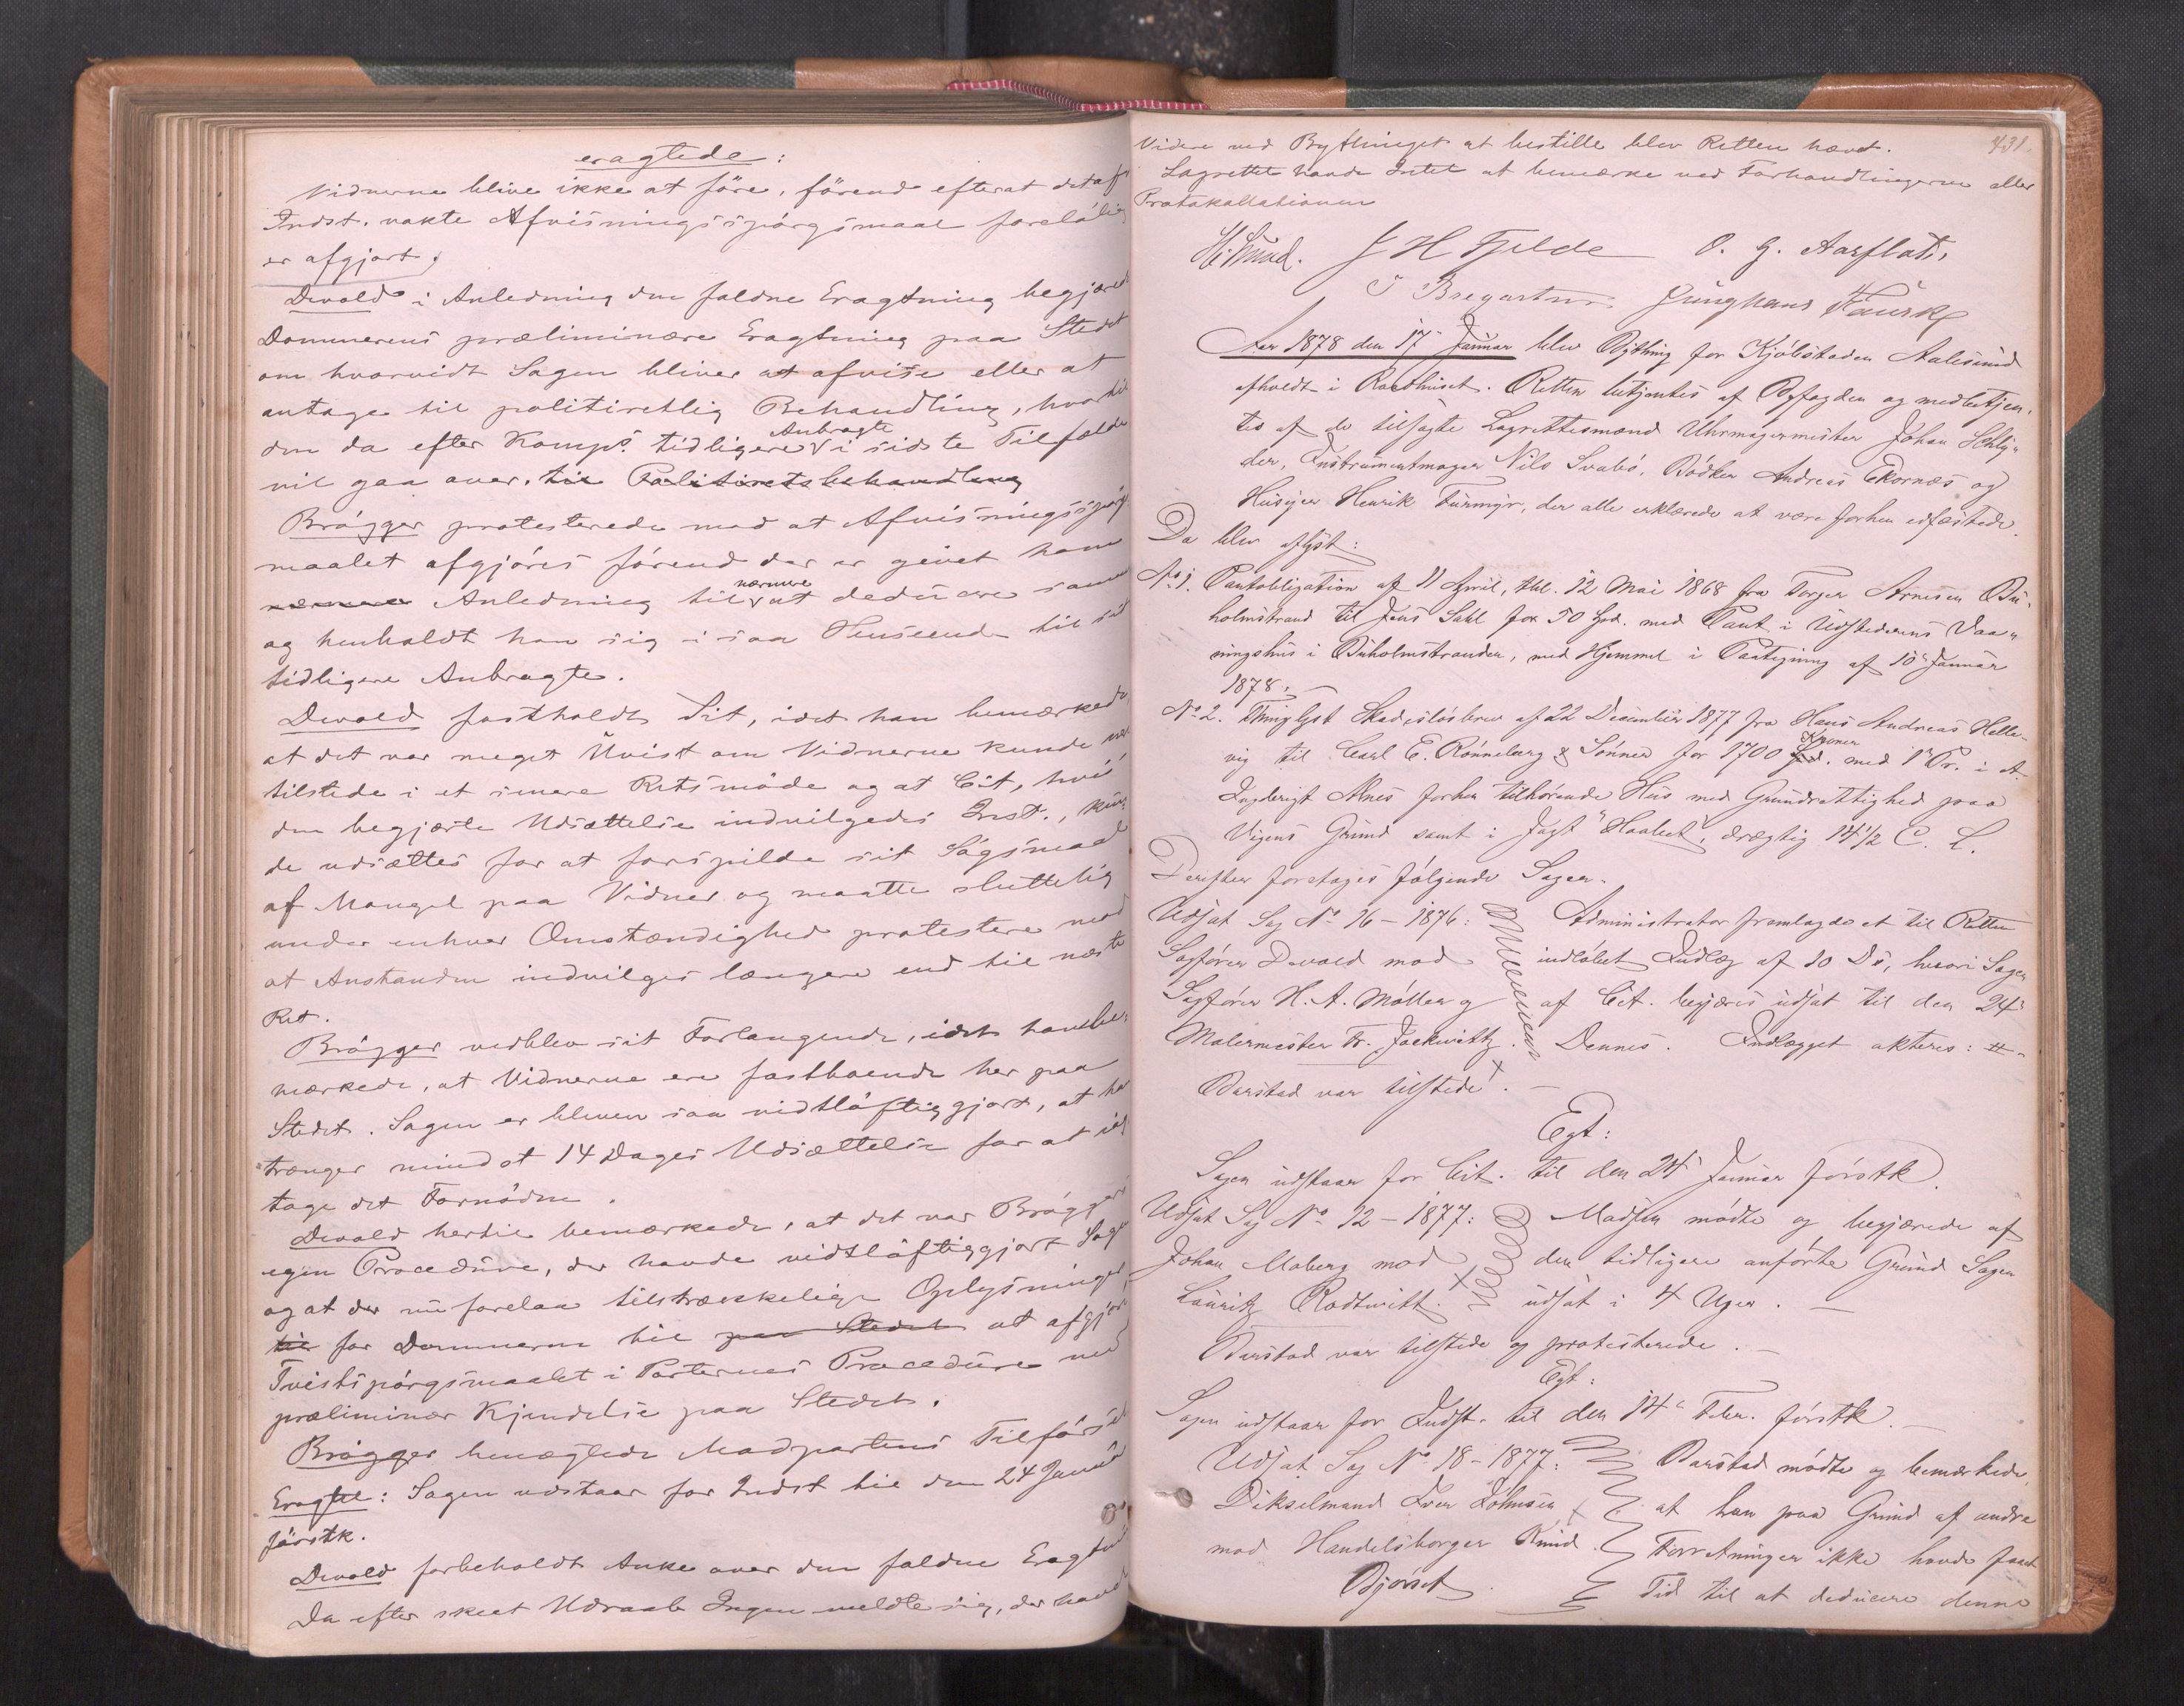 eragtede:
Vidnerne blive ikke at före, förend efterat det af
Indst. vakte Afvisningsspörgsmaal foreløbig
er afgjort.
Devold i Anledning den faldne Eragtning begjæred
Dommerens præliminære Eragtning paa Stedet
om hvorvidt Sagen bliver at afvise eller at
antage til politiretlig Behandling, hvortil
den da efter Komps. tidligere Anbragte i sidste Tilfælde
vil gaa over. til Politiretsbehandling
Brögger protesterede mod at Afvisningsspörgs
maalet afgjöres förend der er givet ham
nærmere Anledning til nærmere at deducere samme
og henholdt han sig i saa Henseende til sit
tidligere Anbragte.
Devold fastholdt Sit, idet han bemærkede,
at det var meget Uvist om Vidnerne kunde være
tilstede i et senere Retsmöde og at Cit., hvis
den begjærte Udsættelse indvilgedes Indst., kun-
de udsættes for at forspilde sit Sögsmaal
af Mangel paa Vidner og maatte sluttelig
under enhver Omstændighed protestere mod
at Anstanden indvilges længere end til næste
Ret.
Brögger vedblev sit Forlangende, idet han be-
mærkede, at Vidnerne ere fastboende her paa
Stedet. Sagen er bleven saa vidtlöftiggjort, at han
trænger mindst 14 Dages Udsættelse for at iagt
tage det Fornödne.
Devold hertil bemærkede, at det var Bröggers
egen Procedure, der havde vidtlöftiggjort Sagen
og at der nu forelaa tilstrækkelige Oplysninger
til for Dommeren til paa Stedet at afgjöre
Tvistspörgsmaalet i Parternes Procedure ved
præliminær Kjendelse paa Stedet.
Brögger benægtede Modpartens Tilförsel
Eragtet: Sagen udstaar for Indst til den 24 Januar
förstk.
Devold forbeholdt Anke over den faldne Eragtning
Da efter skeet Udraab Ingen meldte sig, der havde
431.
Videre ved Bythinget at bestille blev Retten hævet.
Lagrettet havde Intet at bemærke ved Forhandlingerne eller
Protokollationen
J H Fjelde O. G. Aarflot.
Junghans Kaurske
Aar 1878 den 17 Januar blev Bything for Kjöbstaden Aalesund
afholdt i Raadhuset. Retten betjentes af Byfogden og medbetjen-
tes af de tilsagte Lagrettesmænd Uhrmagermester Johan Schly-
der, Instrumentmager Nils Svabö, Bödker Andreas Ekornæs og
Huseier Henrik Furmyr, der alle erklærede at være forhen edfæstede.
Da blev aflyst:
No 1. Pantobligation af 11 April, thl. 12 Mai 1868 fra Torger Arnesen Bu-
holmstrand til Jens Dahl for 50 Spd. med Pant i Udstederens Vaa-
ningshus i Buholmstranden, med Hjemmel i Paategning af 10 Januar
1878.
No 2. Thinglyst Skadeslösbrev af 22 December 1877 fra Hans Andreas Helle-
vig til Carl E. Rönneberg & Sönner for 1700 Kroner Spd. med 1 Pr. i A.
Ingebrigt Alnes forhen tilhörende Hus med Grundrettighed paa
Vigens Grund samt i Jagt "Haabet", drægtig 14 1/2 C. L.
Derefter foretoges fölgende Sager.
Udsat Sag No 16 - 1876: Administrator fremlagde et til Retten
Sagförer Devold mod indlöbet Indlæg af 10 Ds, hvori Sagen
Sagförer H. A. Möller og af Cit. begjæres udsat til den 24
Malermester Fr. Jackwitz. Dennes. Indlægget akteres: #
Barstad var tilstede.
Egt:
Sagen udstaar for Cit. til den 24 Januar förstk.
Udsat Sag No 12 - 1877: Madsen mödte og begjærede af
Johan Moberg mod den tidligere anförte Grund Sagen
Lauritz Rodtwitt. udsat i 4 Uger.
Barstad var tilstede og protesterede.
Egt:
Sagen udstaar for Indst. til den 14 Febr. förstk.
Udsat Sag No 18 - 1877: Barstad mödte og bemærkede,
Dikselmand Iver Johnsen at han paa Grund af andre
mod Handelsborger Knud Forretninger ikke havde faaet
Bjørset Tid til at deducere denne